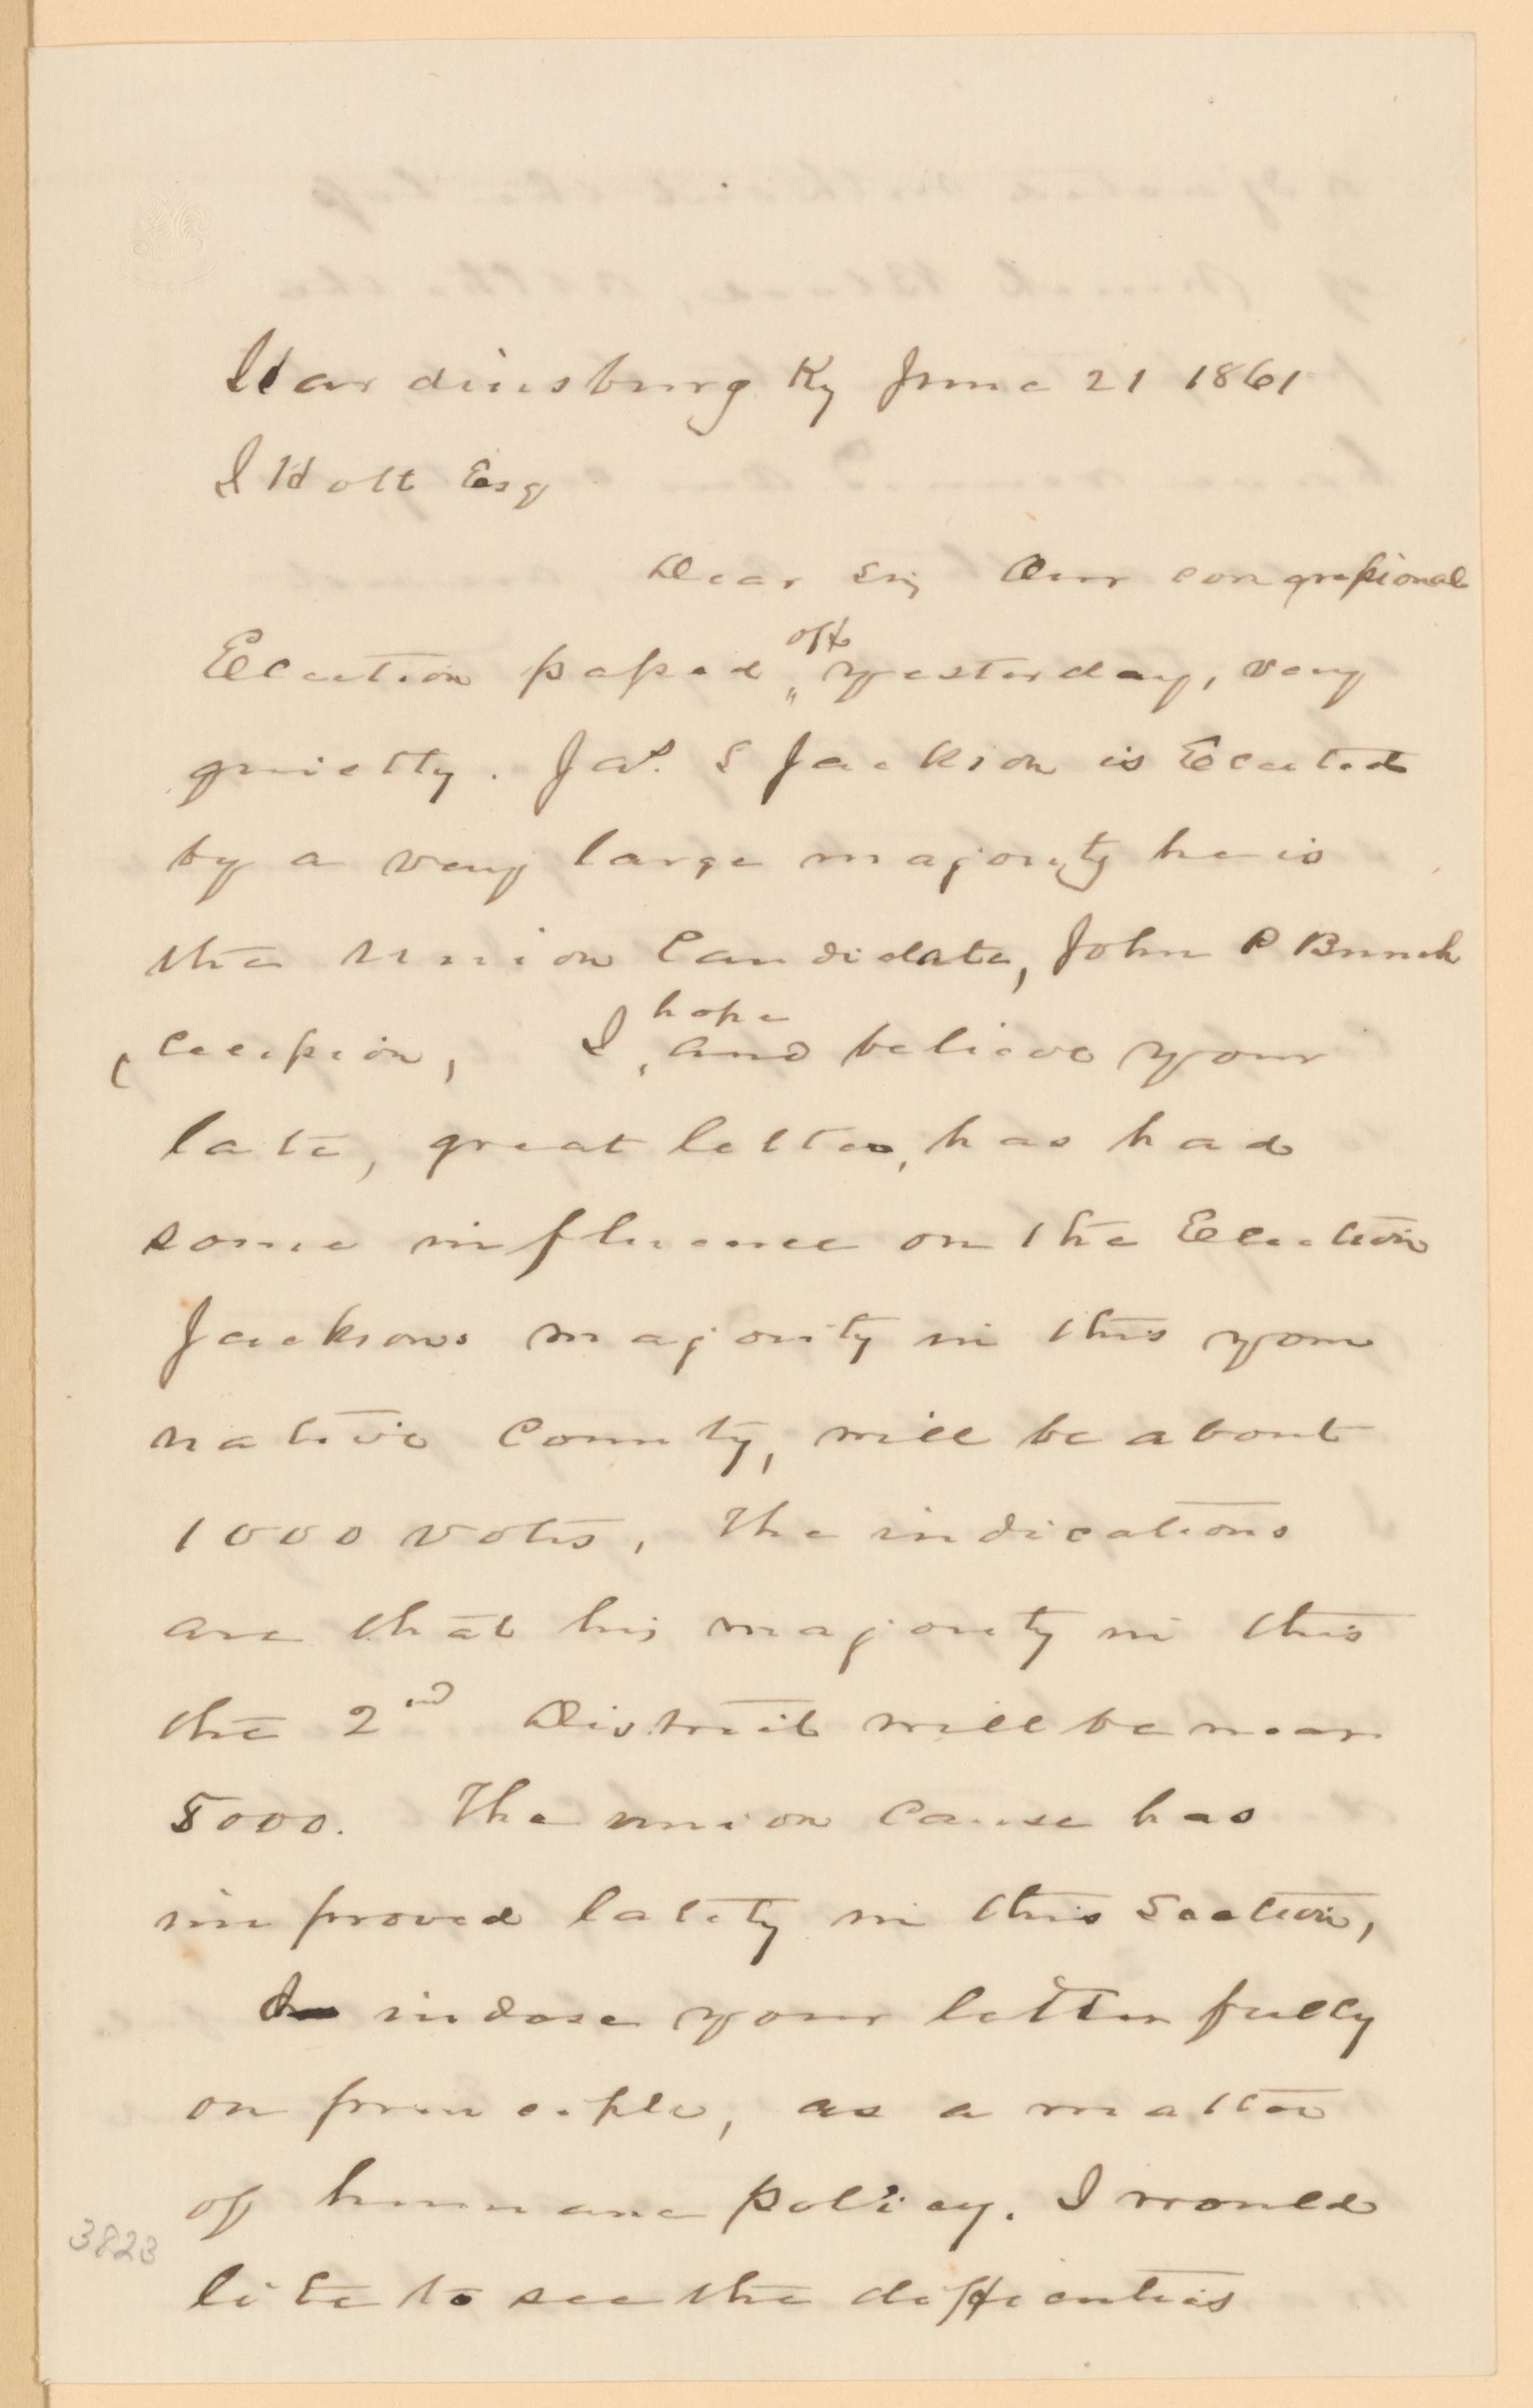 Hardinsburg Ky June 21 1861
J Holt Esq
Dear Sir, Our congressional
Election passed off yesterday, very
quietly. Jas. S Jackson is Elected
by a very large majority he is
the Union Candidate, John P Bunch
secession, I hope and believe your
late, great letter, has had
some influence on the Election
Jacksons majority in this your
native County, will be about
1000 votes, The indications
are that his majority in this
the 2nd District will be near
5000. The union cause has
improved lately in this Section,
I indose your letter fully
on principle, as a matter
of humane policy. I would
like to see the difficulties
3823